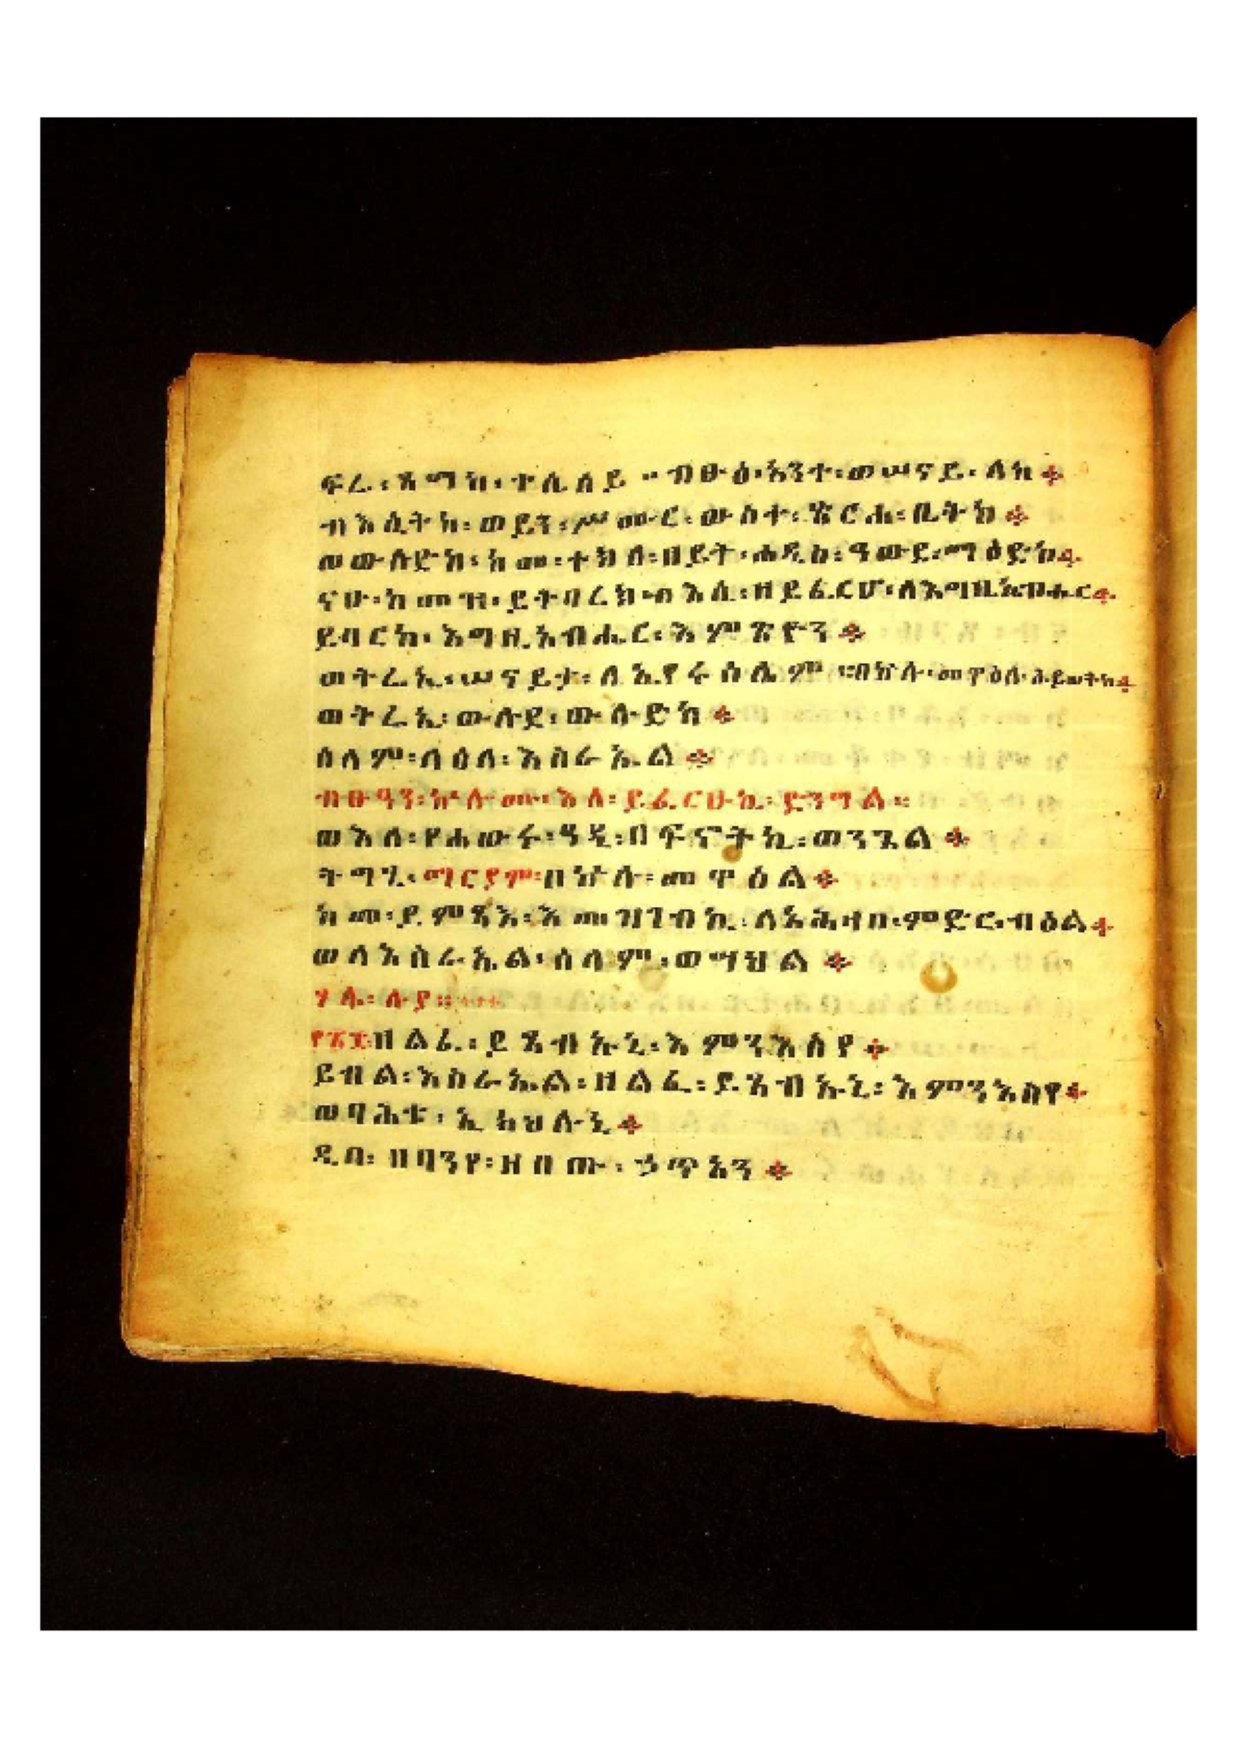 ፍሬ፡ ጻማከ፡ ተሴሰይ ። ብፁዕ፡ አንተ፡ ወሠናይ፡ ለከ
ብእሲትከ፡ ወይን፡ ሥሙር፡ ውስተ፡ ጽርሐ፡ ቤትከ
ወውሉድከ፡ ከመ፡ ተክለ፡ ዘይት፡ ሐዲስ፡ ዓውደ፡ ማዕድከ
ናሁ፡ ከመዝ፡ ይትባረክ፡ ብእሲ፡ ዘይፈርሆ፡ ለእግዚአብሔር
ይባርከ፡ እግዚአብሔር፡ እምጽዮን
ወትሬኢ፡ ሠናይታ፡ ለኢየሩሳሌም ። በኵሉ፡ መዋዕለ፡ ሕይወትከ
ወትሬኢ፡ ውሉደ፡ ውሉድከ
ሰላም፡ ላዕለ፡ እስራኤል
ብፁዓን፡ ኵሎሙ፡ እለ፡ ይፈርሁኪ፡ ድንግል ።
ወእለ፡ የሐውሩ፡ ዓዲ፡ በፍኖትኪ፡ ወንጌል
ትግኂ፡ ማርያም፡ በኵሉ፡ መዋዕል
ከመ፡ ይምጻእ፡ እመዝገብኪ፡ ለአሕዛበ፡ ምድር፡ ብዕል
ወለእስራኤል፡ ሰላም፡ ወሣህል
ሃሌ፡ ሉያ ።
፻፳፰ ዘልፈ፡ ይጸብኡኒ፡ እምንእስየ
ይብል፡ እስራኤል፡ ዘልፈ፡ ይጸብኡኒ፡ እምንእስየ
ወባሕቱ፡ ኢክህሉኒ
ዲበ፡ ዘባንየ፡ ዘበጡ፡ ኃጥኣን